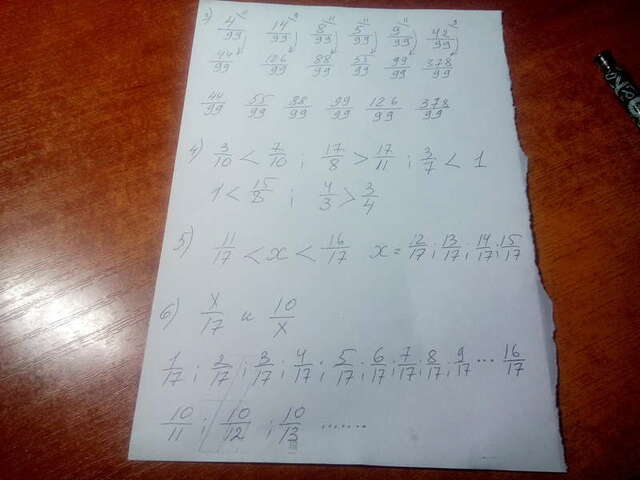 3) 4/99 11 14/99 9 8/99 11 5/99 11 9/99 11 42/99 9
44/99 126/99 88/99 55/99 99/99 378/99
44/99 55/99 88/99 99/99 126/99 378/99
4) 3/10 < 7/10 ; 17/8 > 17/11 ; 3/7 < 1
1 < 15/8 ; 4/3 > 3/4
5) 11/17 < x < 16/17 x = 12/17 ; 13/17 ; 14/17 ; 15/17
6) x/17 и 10/x
1/17 ; 2/17 ; 3/17 ; 4/17 ; 5/17 ; 6/17 ; 7/17 ; 8/17 ; 9/17 ... 16/17
10/11 ; 10/12 ; 10/13 .......